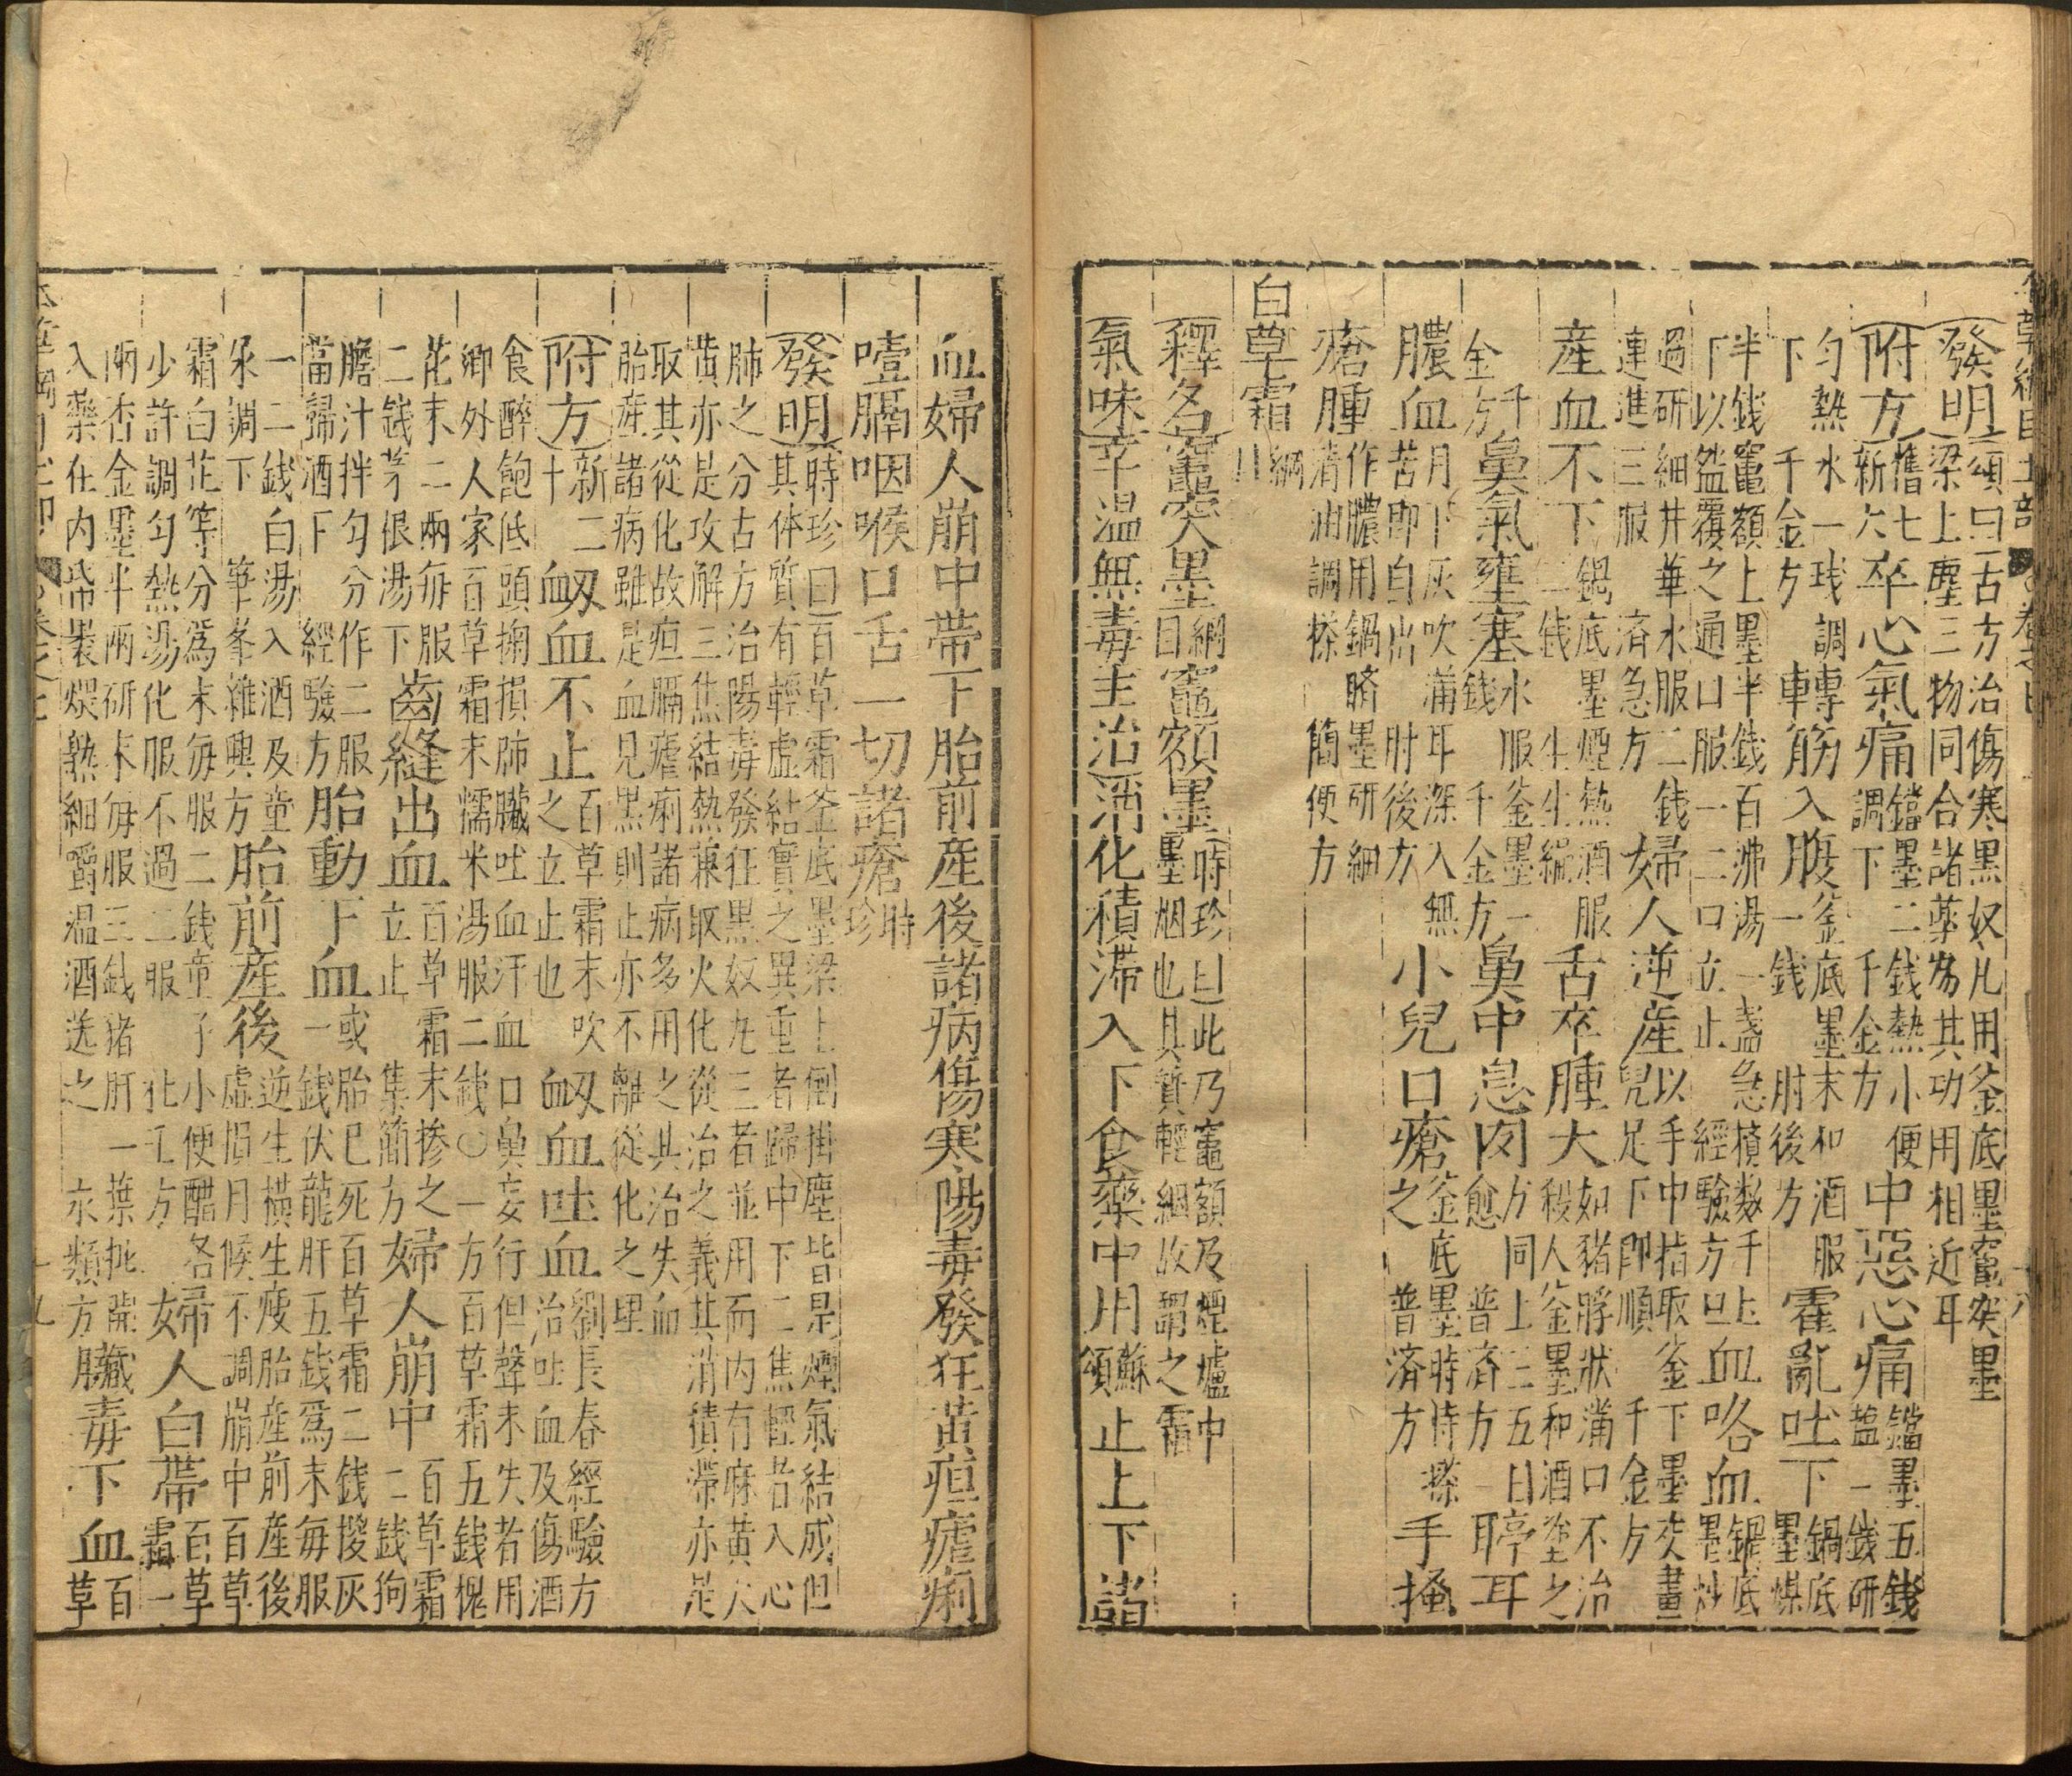 本草綱目土部 卷之七 十八
發明 頌曰古方治傷寒黑奴丸用釜底墨竈突墨梁上塵三物同合諸藥為其功用相近耳
附方 舊七新六 卒心氣痛 鐺墨二錢熱小便調下 千金方 中惡心痛 鐺墨五錢鹽一錢研
勻熱水一琖調下 千金方 轉筋入腹 釜底墨末和酒服一錢 肘後方 霍亂吐下 鍋底墨煤
半錢竈額上墨半錢百沸湯一盞急攪數千下以盌覆之通口服一二口立止 經驗方 吐血咯血 鍋底墨炒
過研細井華水服二錢連進三服 濟急方 婦人逆產 以手中指取釜下墨交畫兒足下即順 千金方
產血不下 鍋底墨煙熱酒服二錢 生生編 舌卒腫大 如豬脬狀滿口不治殺人釜墨和酒塗之
千金方 鼻氣壅塞 水服釜墨一錢 千金方 鼻中息肉 方同上三五日愈 普濟方 亭耳
膿血 月下灰吹滿耳深入無苦即自出 肘後方 小兒口瘡 釜底墨時時搽之 普濟方 手搔
瘡腫 作膿用鍋臍墨研細清油調搽 簡便方
白草霜 綱目
釋名 竈突墨 綱目 竈額墨 時珍曰此乃竈額及煙爐中墨烟也其質輕細故謂之霜
氣味 辛温無毒主治消化積滯入下食藥中用 蘇頌 止上下諸
血婦人崩中帶下胎前產後諸病傷寒陽毒發狂黃疸瘧痢
噎膈咽喉口舌一切諸瘡 時珍
發明 時珍曰百草霜釜底墨梁上倒掛塵皆是煙氣結成但其体質有輕虛結實之異重者歸中下二焦輕者入心
肺之分古方治陽毒發狂黑奴丸三者並用而內有麻黃大黃亦是攻解三焦結熱兼取火化從治之義其消積滯亦是
取其從化故疸膈瘧痢諸病多用之其治失血胎產諸病雖是血見黑則止亦不離從化之理
附方 新二十 衂血不止 百草霜末吹之立立止止也 衂血吐血 劉長春經驗方治吐血及傷酒
食醉飽低頭掬損肺臟吐血汗血口鼻妄行但聲未失若用鄉外人家百草霜末糯米湯服二錢〇一方百草霜五錢槐
花末二兩每服二錢茅根湯下 齒縫出血 百草霜末摻之立止 集簡方 婦人崩中 百草霜二錢狗
膽汁拌勻分作二服當歸酒下 經驗方 胎動下血 或胎已死百草霜二錢㯶灰一錢伏龍肝五錢爲末每服
一二錢白湯入酒及童尿調下 筆峯雜興方 胎前產後 逆生橫生瘦胎產前產後虛損月候不調崩中百草
霜白芷等分爲末每服二錢童子小便醋各少許調勻熱湯化服不過二服 杜壬方 婦人白帶 百草霜一
兩香金墨半兩研末每服三錢猪肝一葉批開入藥在內帋裹煨熟細嚼温酒送之 永類方 臟毒下血 百草
本草綱目土部 卷之七 十九